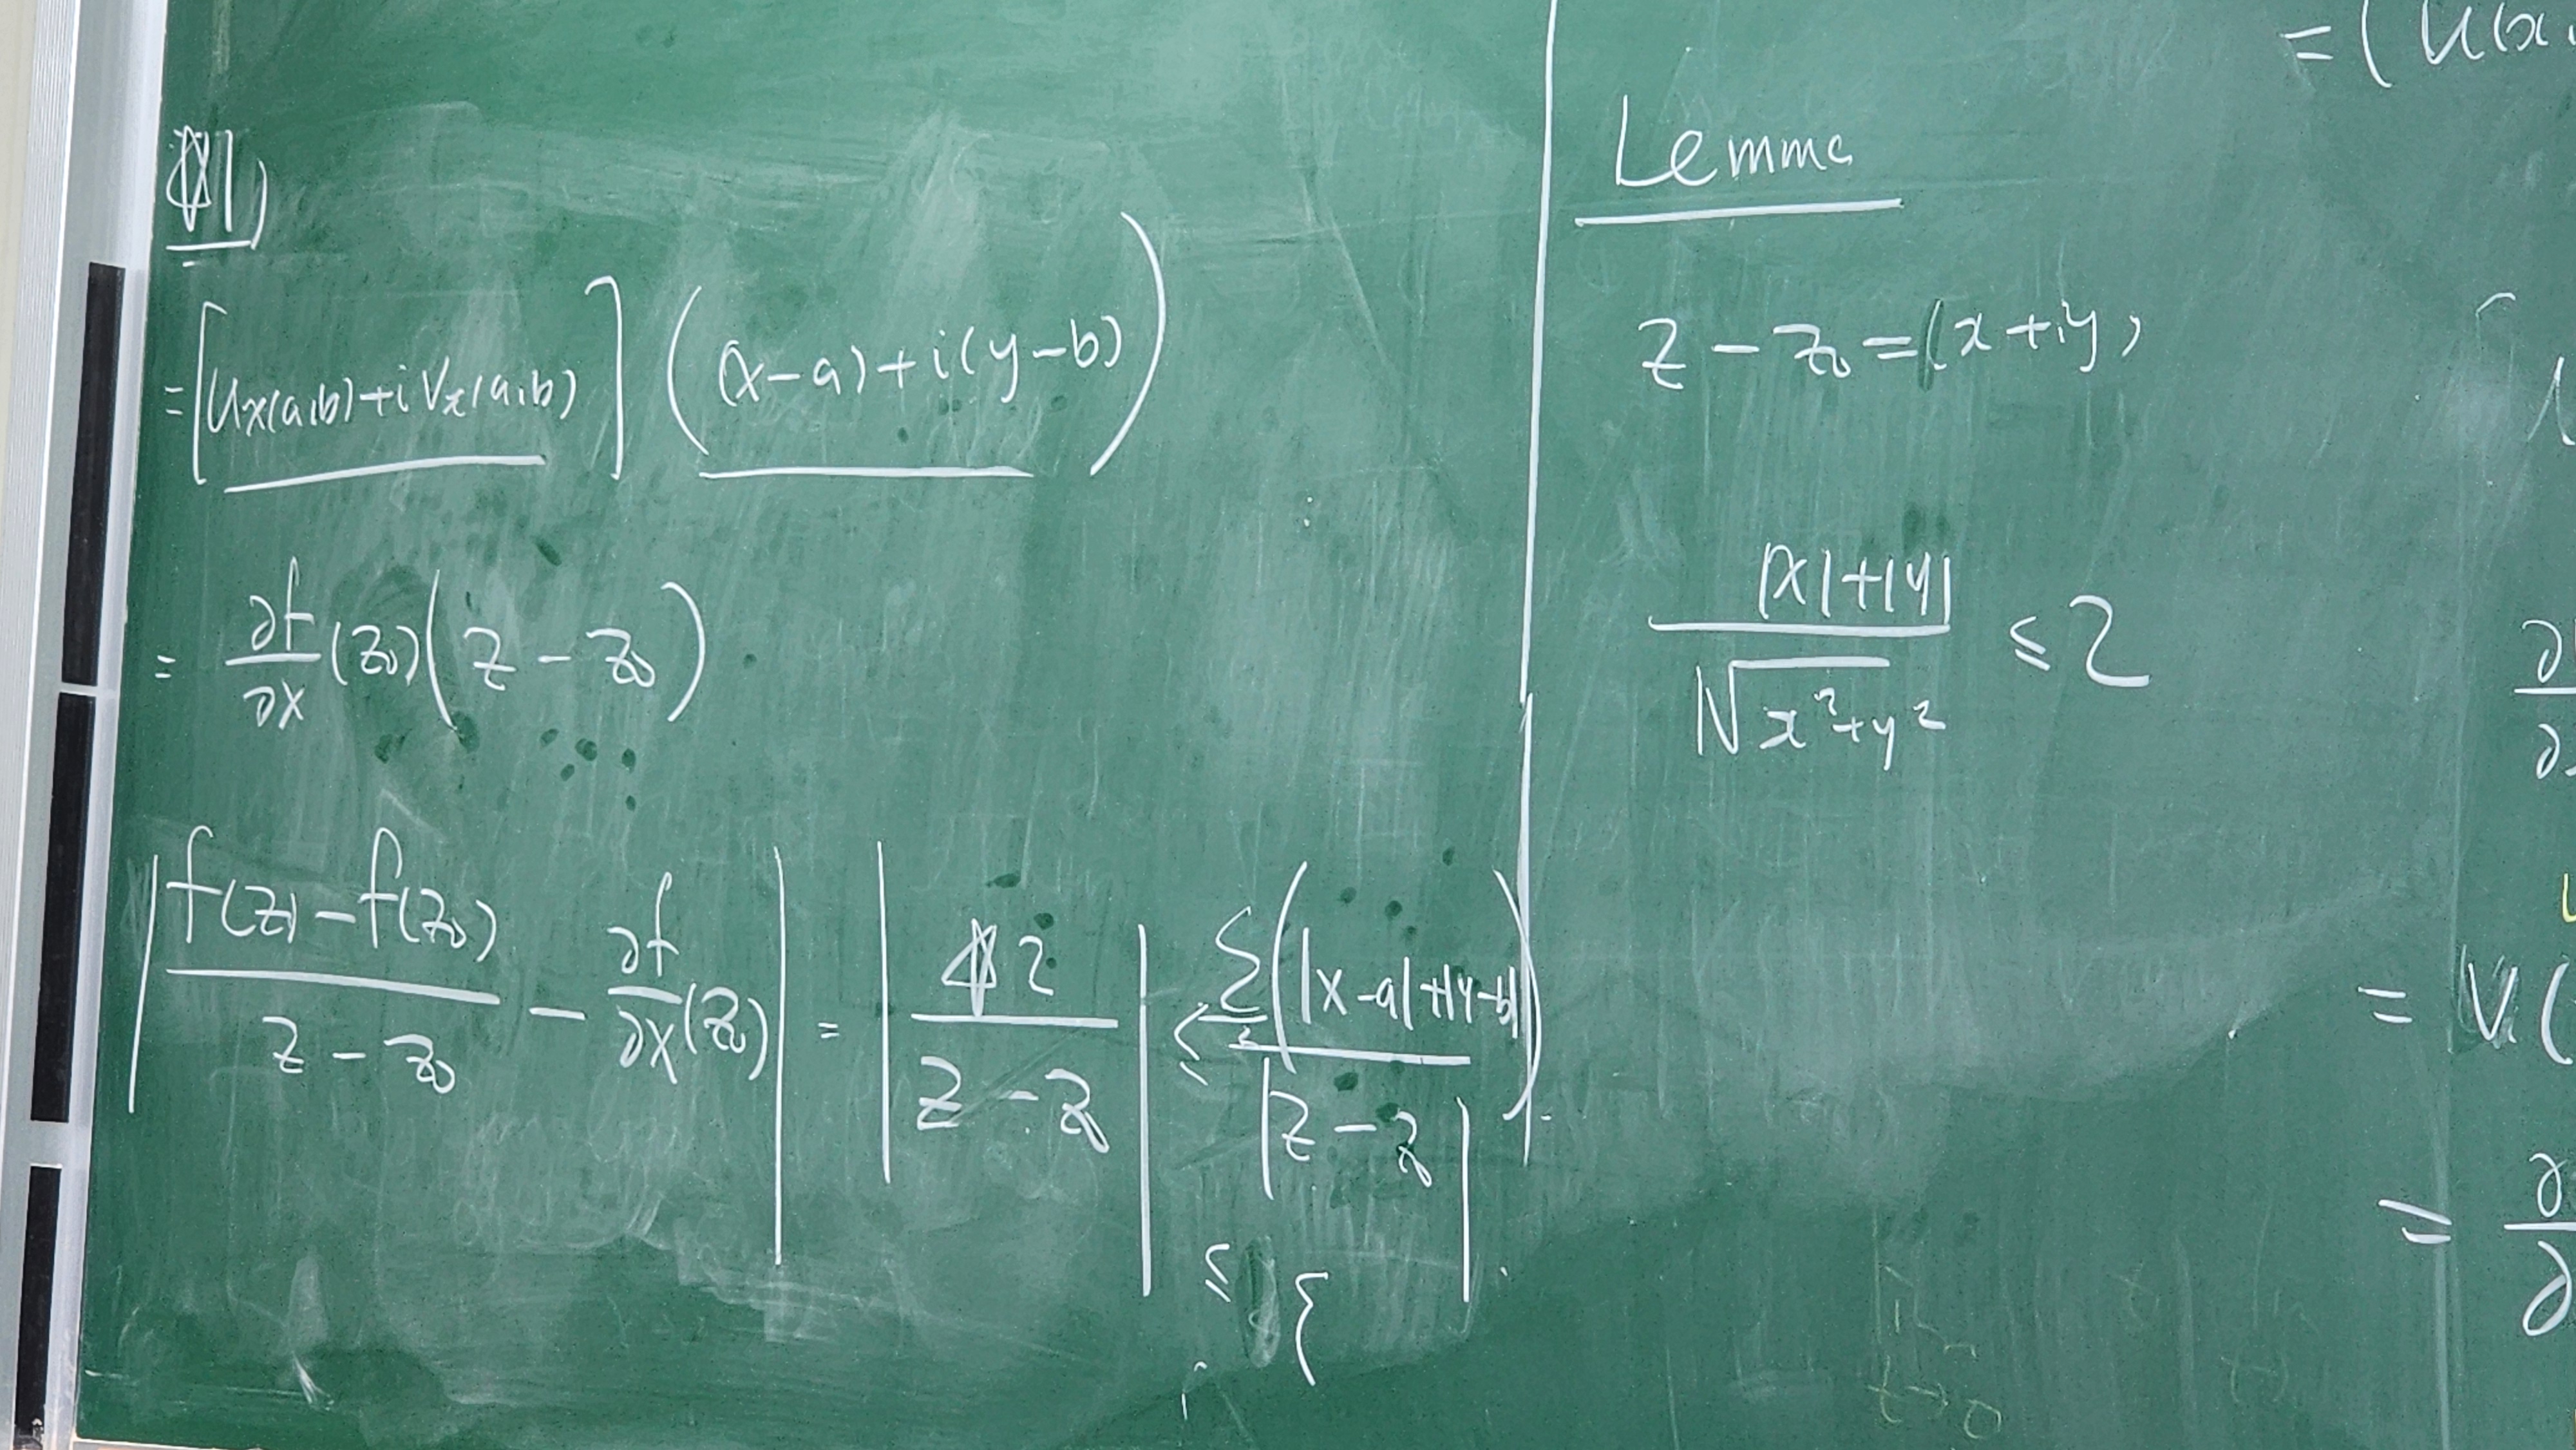 ①1)
= [Ux(a,b)+iVx(a,b)] ((x-a)+i(y-b))
= ∂f/∂x (z₀)(z - z₀)
| (f(z) - f(z₀))/(z - z₀) - ∂f/∂x (z₀) | = | ①2/(z - z₀) | ≤ ε/2 (|x-a|+|y-b|)/|z - z₀|
≤ ε
Lemma
z - z₀ = (x+iy)
(|x|+|y|)/√(x²+y²) ≤ 2
= (U(x,
∂
= V(
= ∂/∂
t→0